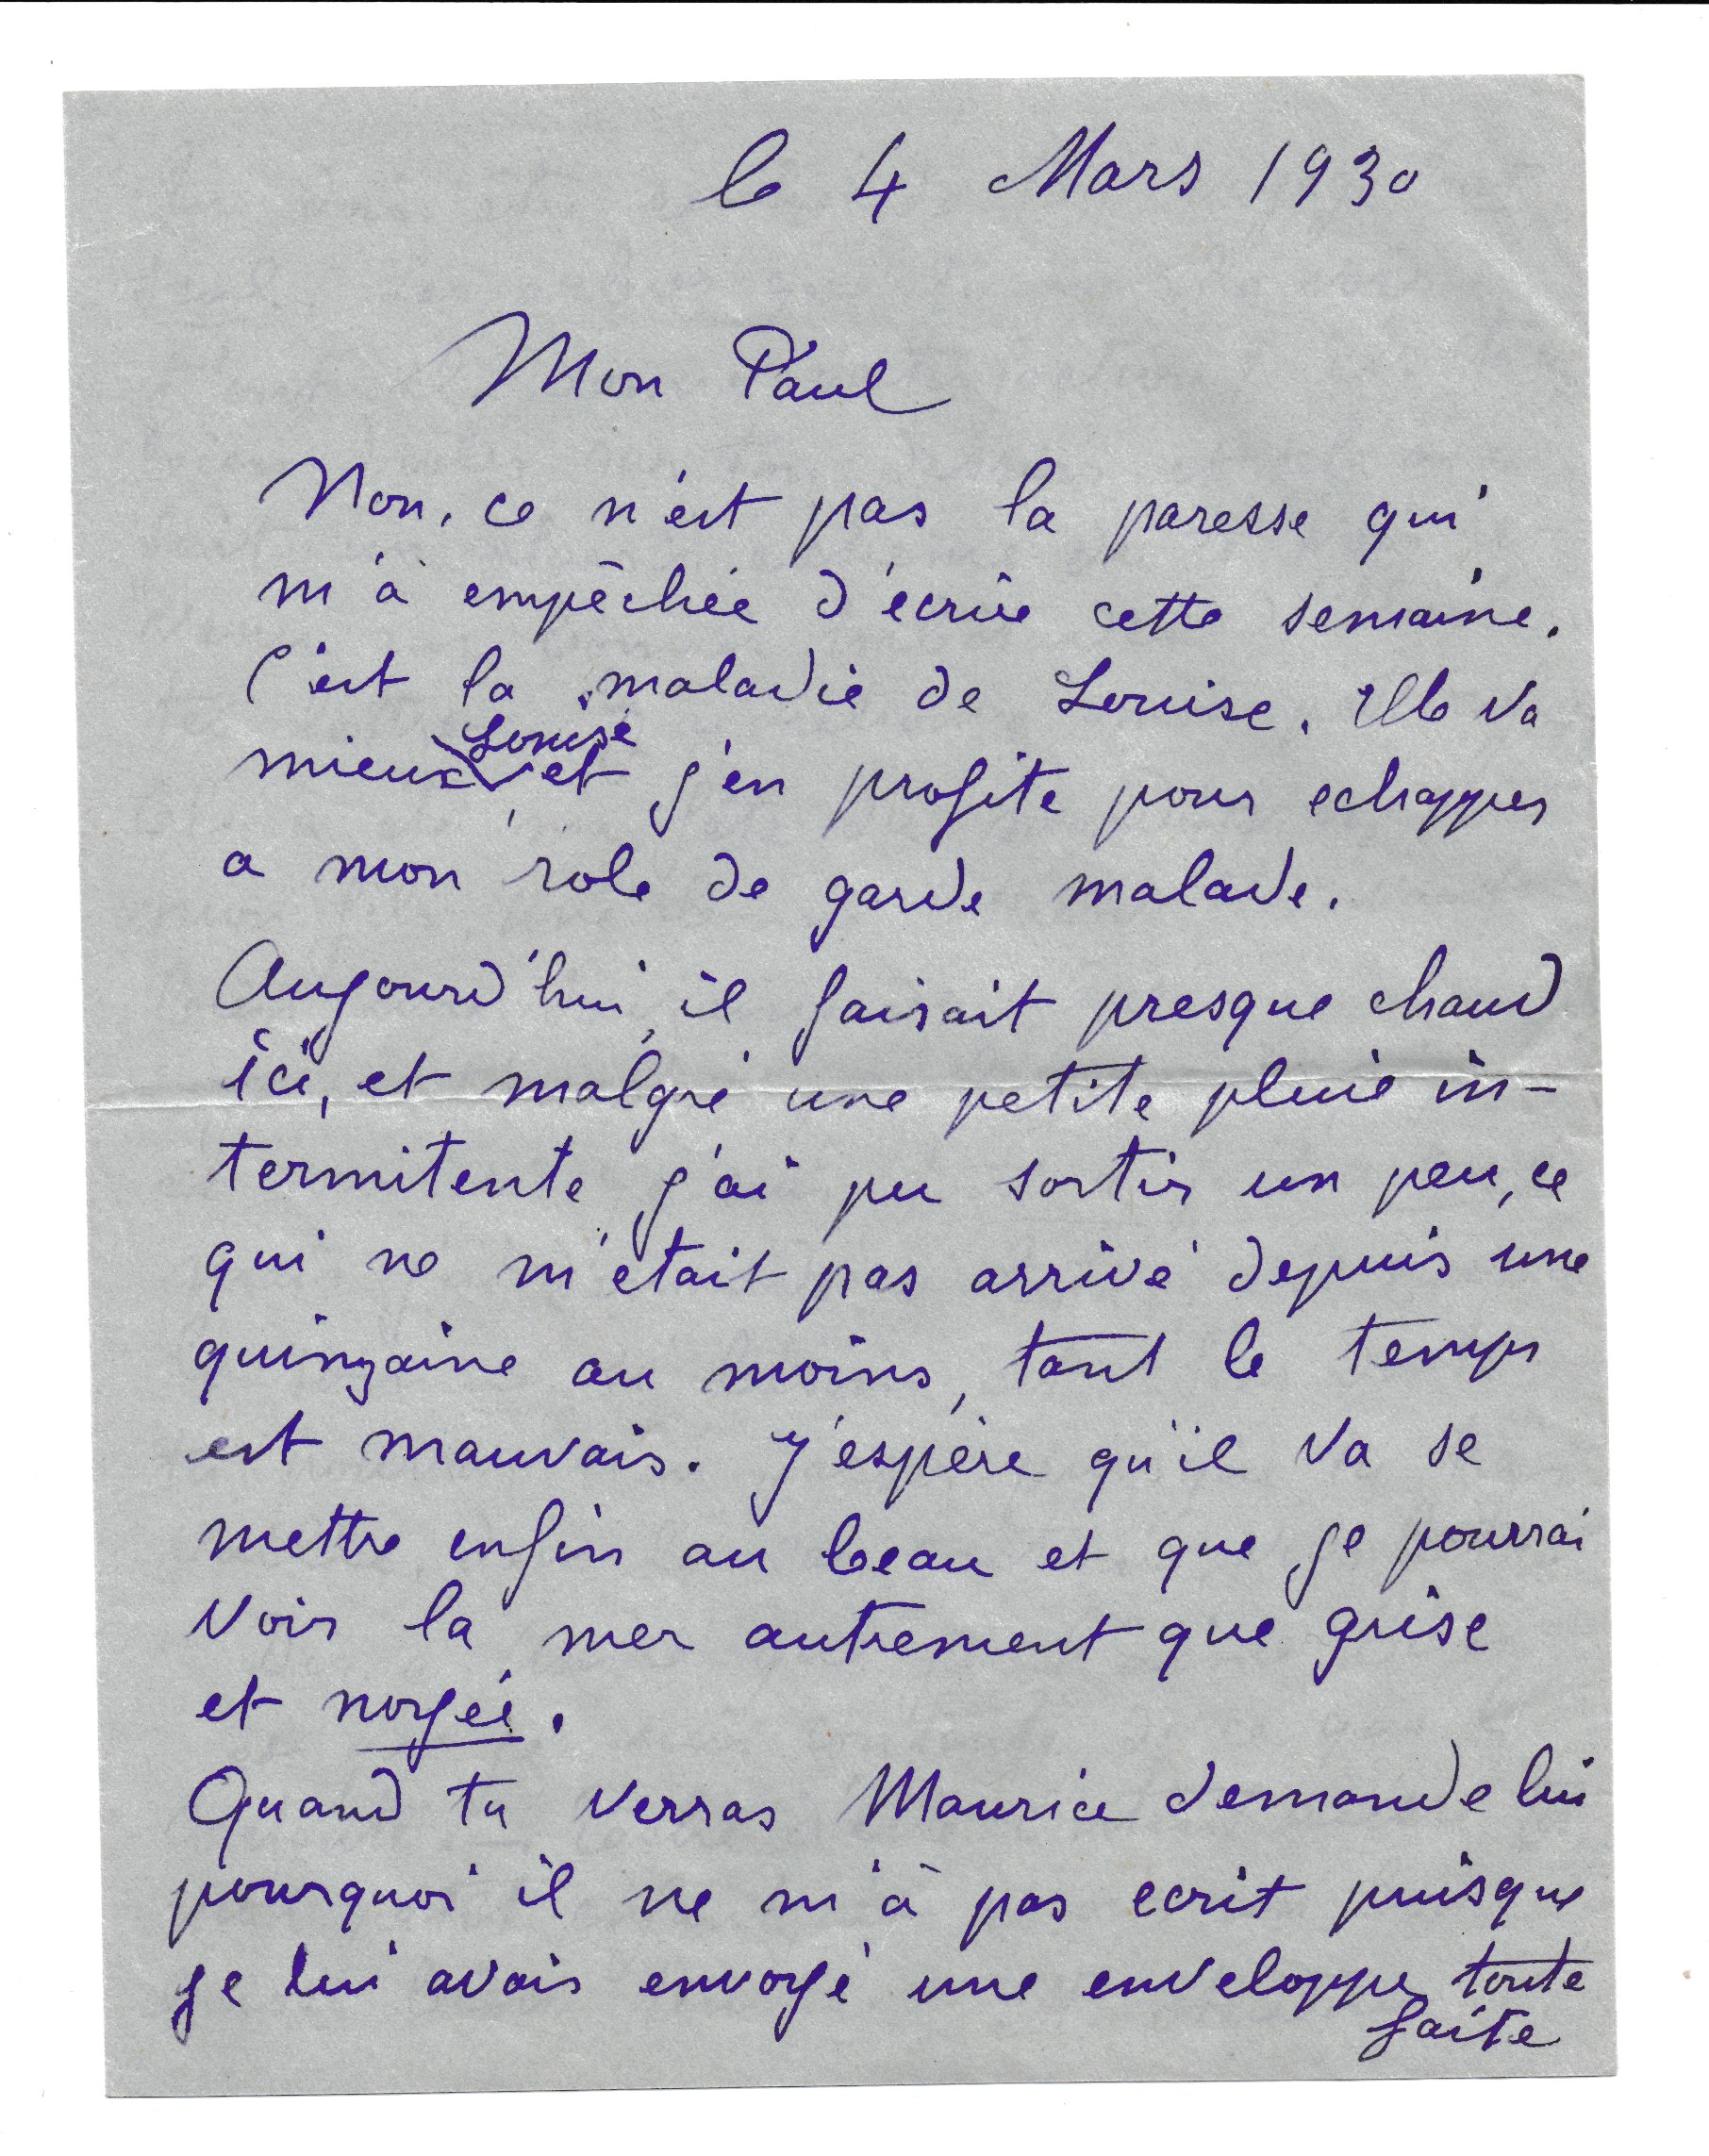 le 4 Mars 1930
Mon Paul
Non, ce n'est pas la paresse qui
m'à empêchée d'écrire cette semaine.
C'est la maladie de Louise. Elle va
mieux Louise et j'en profite pour echapper
a mon role de garde malade.
Aujourd'hui, il faisait presque chaud
ici, et malgré une petite pluie in-
termitente j'ai pu sortir un peu, ce
qui ne m'etait pas arrivé depuis une
quinzaine au moins, tant le temps
est mauvais. J'espère qu'il va se
mettre enfin au beau et que je pourrai
voir la mer autrement que grise
et noyée.
Quand tu verras Maurice demande lui
pourquoi il ne m'à pas ecrit puisque
je lui avais envoyé une enveloppe toute
faite